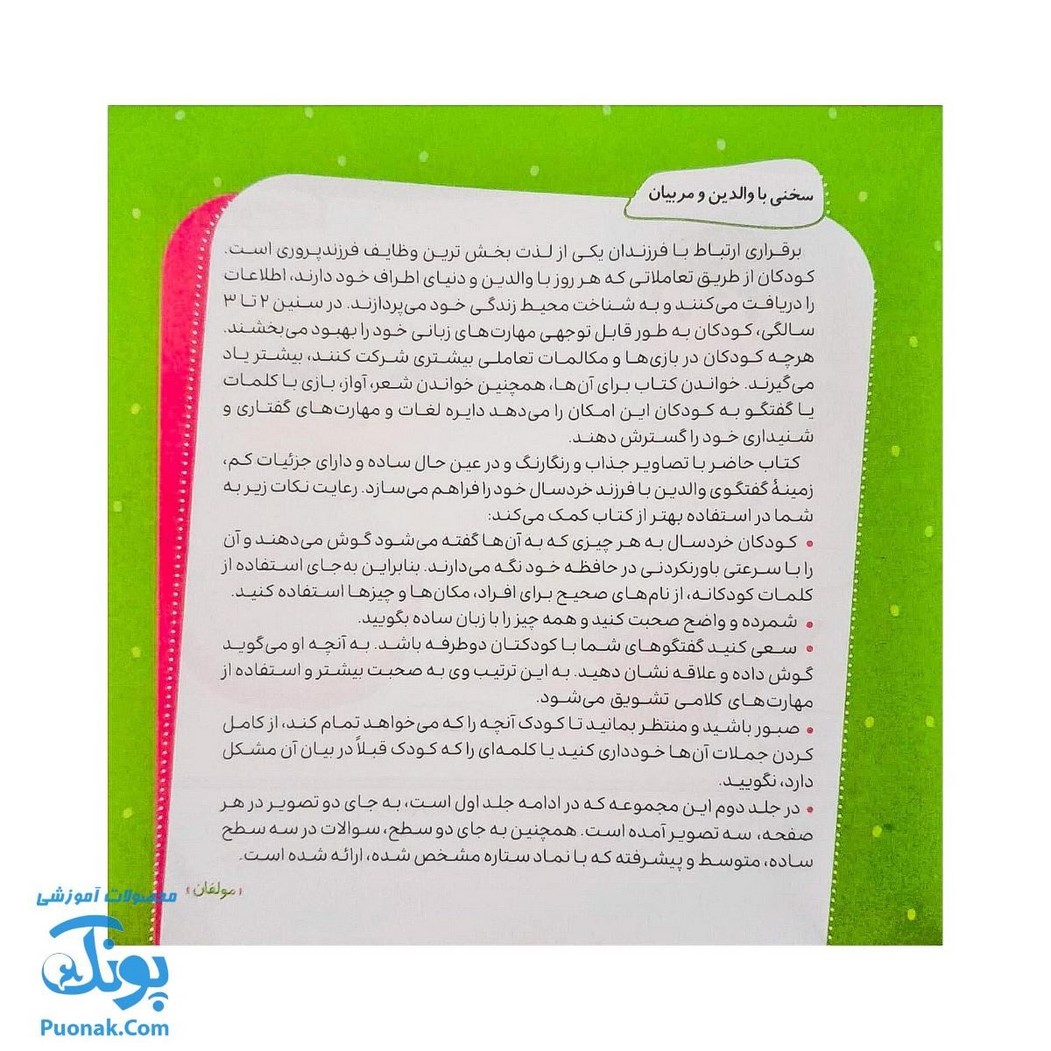 سخنی با والدین و مربیان
برقراری ارتباط با فرزندان یکی از لذت بخش ترین وظایف فرزندپروری است.
کودکان از طریق تعاملاتی که هر روز با والدین و دنیای اطراف خود دارند، اطلاعات
را دریافت می‌کنند و به شناخت محیط زندگی خود می‌پردازند. در سنین ۲ تا ۳
سالگی، کودکان به طور قابل توجهی مهارت‌های زبانی خود را بهبود می‌بخشند.
هرچه کودکان در بازی‌ها و مکالمات تعاملی بیشتری شرکت کنند، بیشتر یاد
می‌گیرند. خواندن کتاب برای آن‌ها، همچنین خواندن شعر، آواز، بازی با کلمات
یا گفتگو به کودکان این امکان را می‌دهد دایره لغات و مهارت‌های گفتاری و
شنیداری خود را گسترش دهند.
کتاب حاضر با تصاویر جذاب و رنگارنگ و در عین حال ساده و دارای جزئیات کم،
زمینهٔ گفتگوی والدین با فرزند خردسال خود را فراهم می‌سازد. رعایت نکات زیر به
شما در استفاده بهتر از کتاب کمک می‌کند:
• کودکان خردسال به هر چیزی که به آن‌ها گفته می‌شود گوش می‌دهند و آن
را با سرعتی باورنکردنی در حافظه خود نگه می‌دارند. بنابراین به‌جای استفاده از
کلمات کودکانه، از نام‌های صحیح برای افراد، مکان‌ها و چیزها استفاده کنید.
• شمرده و واضح صحبت کنید و همه چیز را با زبان ساده بگویید.
• سعی کنید گفتگوهای شما با کودکتان دوطرفه باشد. به آنچه او می‌گوید
گوش داده و علاقه نشان دهید. به این ترتیب وی به صحبت بیشتر و استفاده از
مهارت‌های کلامی تشویق می‌شود.
• صبور باشید و منتظر بمانید تا کودک آنچه را که می‌خواهد تمام کند، از کامل
کردن جملات آن‌ها خودداری کنید یا کلمه‌ای را که کودک قبلاً در بیان آن مشکل
دارد، نگویید.
• در جلد دوم این مجموعه که در ادامه جلد اول است، به جای دو تصویر در هر
صفحه، سه تصویر آمده است. همچنین به جای دو سطح، سوالات در سه سطح
ساده، متوسط و پیشرفته که با نماد ستاره مشخص شده، ارائه شده است.
(مولفان)
محصولات آموزشی
پونک
Puonak.Com